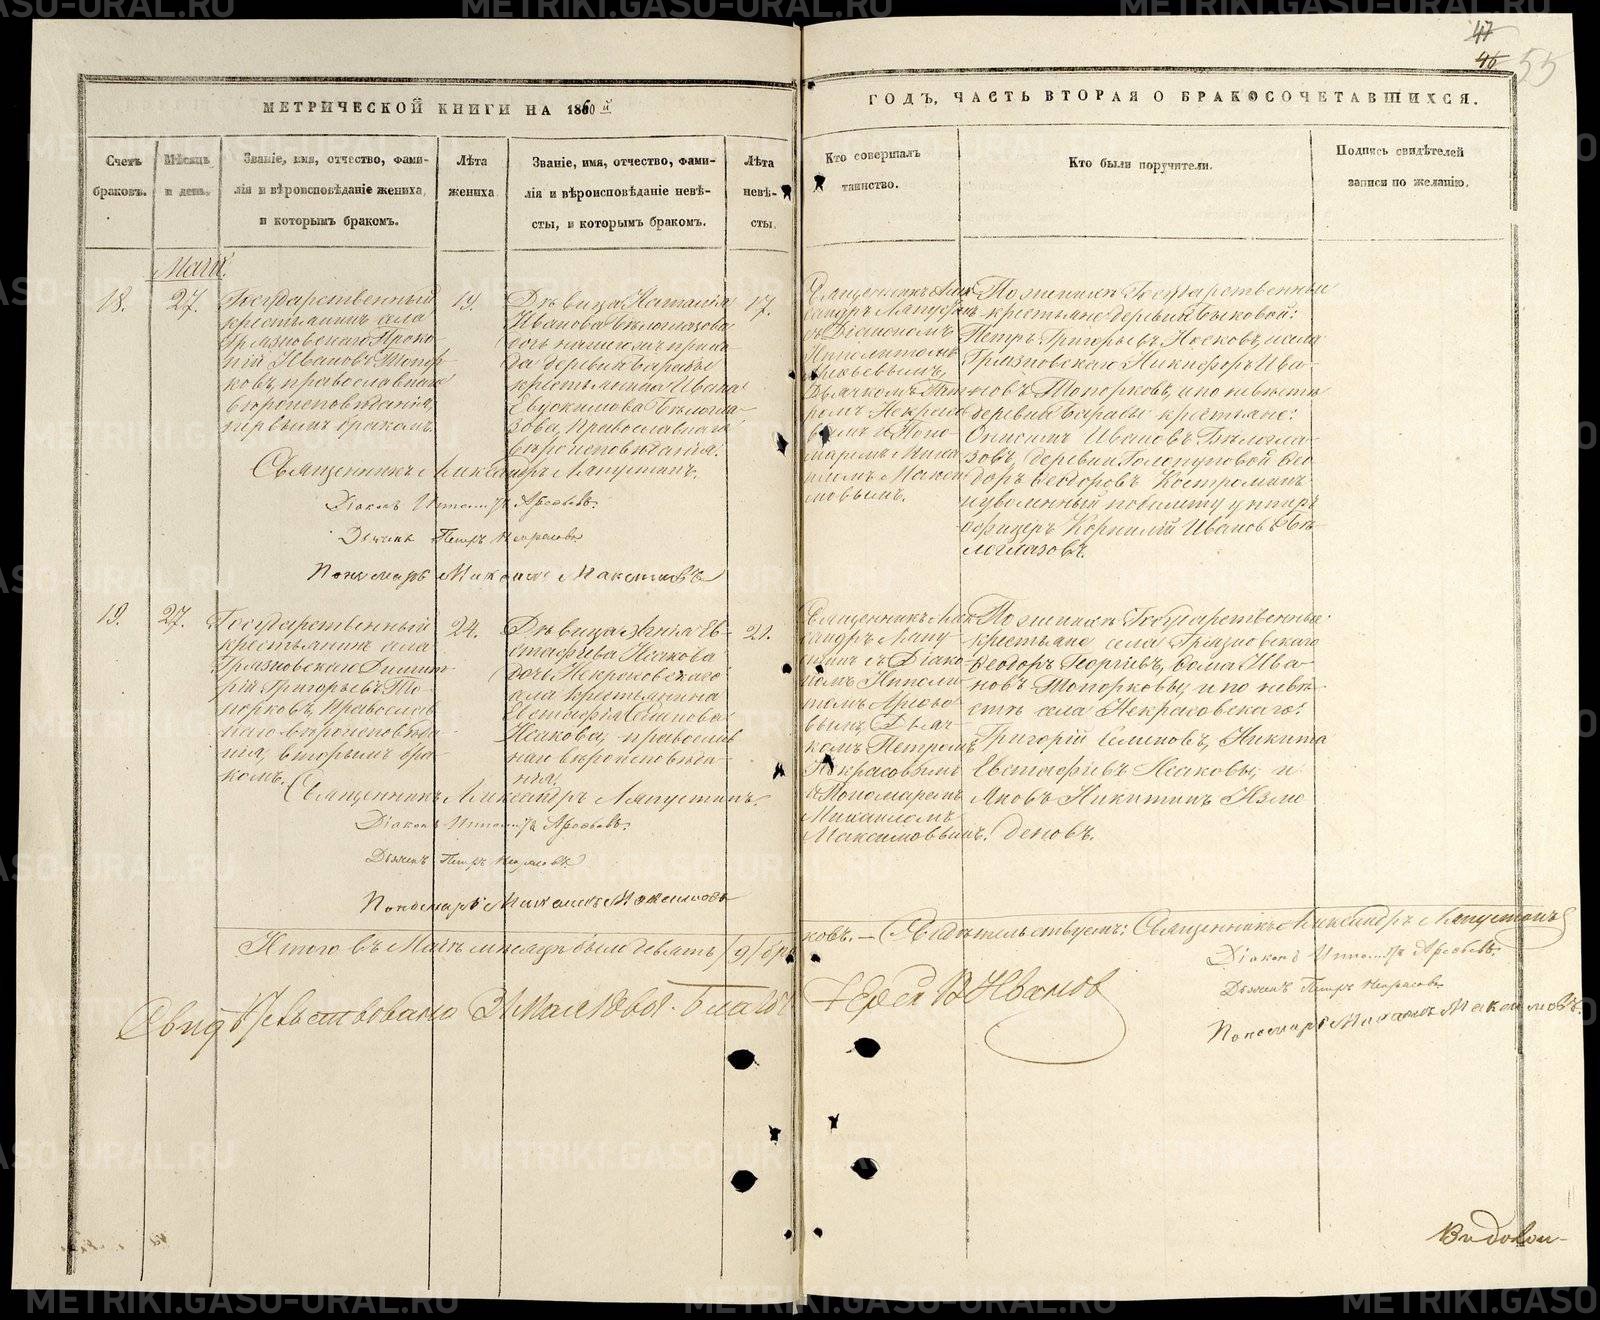 47
46 55
МЕТРИЧЕСКОЙ КНИГИ НА 1860 й
ГОДЪ, ЧАСТЬ ВТОРАЯ О БРАКОСОЧЕТАВШИХСЯ.
Счетъ
браковъ.
Мѣсяцъ
и день.
Званіе, имя, отчество, фами-
лія и вѣроисповѣданіе жениха,
и которымъ бракомъ.
Лѣта
жениха
Званіе, имя, отчество, фами-
лія и вѣроисповѣданіе невѣ-
сты, и которымъ бракомъ.
Лѣта
невѣ-
сты.
Кто совершалъ
таинство.
Кто были поручители.
Подпись свидѣтелей
записи по желанію.
Маія.
18.
27.
Государственный
крестьянинъ села
Грязновскаго Проко-
пій Ивановъ Топор-
ковъ, православнаго
вѣроисповѣданія,
первымъ бракомъ.
19.
Дѣвица Наталія
Иванова Бѣлоглазова
дочь
да деревни
крестьянина Ивана
Евдокимова Бѣлогла-
зова, Православнаго
вѣроисповѣданія.
17.
Священникъ Алек-
сандръ Ляпустинъ
съ Діакономъ
Ипполитомъ
Дьячкомъ Пет-
ромъ Некрасо-
вымъ и Поно-
маремъ Миха-
иломъ Макси-
мовымъ.
По женихѣ Государственные
крестьяне деревни Быковой:
Петръ Григорьевъ Носковъ, села
Грязновскаго Никифоръ Ива-
новъ Топорковъ, и по невѣстѣ
деревни крестьяне:
Онисимъ Ивановъ Бѣлогла-
зовъ, деревни Голопуповой Ѳео-
доръ Ѳеодоровъ Костроминъ
и уволенный по билету унтеръ
офицеръ Корнилій Ивановъ Бѣ-
логлазовъ.
Священникъ Александръ Ляпустинъ.
Діаконъ Ипполитъ
Дьячекъ Петръ Некрасовъ
Пономарь Михаилъ Максимовъ
19.
27.
Государственный
крестьянинъ села
Грязновскаго Димит-
рій Григорьевъ То-
порковъ, Православ-
наго вѣроисповѣда-
нія, вторымъ бра-
комъ.
24.
Дѣвица Ев-
стафіева Исакова
дочь Некрасовскаго
села крестьянина
Евстафія
Исакова, православ-
наго вѣроисповѣда-
нія.
21.
Священникъ Алек-
сандръ Ляпу-
стинъ съ Діако-
номъ Ипполи-
томъ
вымъ, Дьяч-
комъ Петромъ
Некрасовымъ
и Пономаремъ
Михаиломъ
Максимовымъ.
По женихѣ Государственные
крестьяне села Грязновскаго
Ѳеодоръ Георгіевъ, Ѳома Ива-
новъ Топорковы, и по невѣ-
стѣ села Некрасовскаго:
Григорій Никита
Евстафіевъ Исаковы, и
Яковъ Никитинъ Измо-
деновъ.
Священникъ Александръ Ляпустинъ.
Діаконъ Ипполитъ
Дьячекъ Петръ Некрасовъ
Пономарь Михаилъ Максимовъ
Итого въ Маіѣ мѣсяцѣ было девять /9/ бра-
ковъ. — Свидѣтельствуемъ: Священникъ Александръ Ляпустинъ
Діаконъ Ипполитъ
Дьячекъ Петръ Некрасовъ
Пономарь Михаилъ Максимовъ.
Свидѣтельствовано Благоч.
Іерей Ивановъ